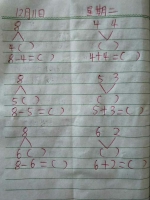 12月11日 星期二
8 4 4
4( ) ( )
8-4=( ) 4+4=( )
8 5 3
5( ) ( )
8-5=( ) 5+3=( )
8 6 2
6( ) ( )
8-6=( ) 6+2=( )